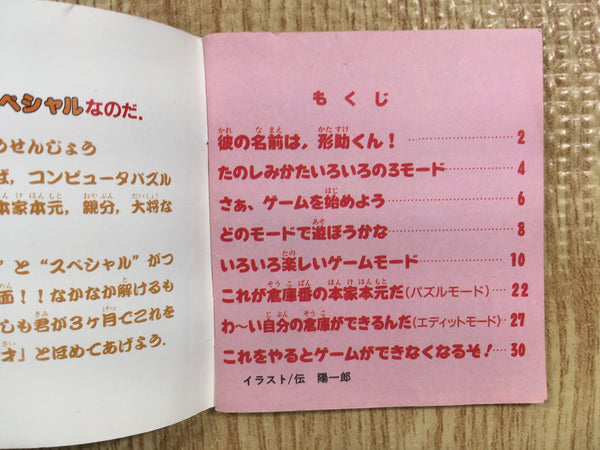 ペシャルなのだ.
めせんじょう
ば, コンピュータパズル
本家本元, 親分, 大将な
” と “スペシャル” がつ
面!! なかなか解けるも
しも君が3ヶ月でこれを
才」とほめてあげよう.
もくじ
彼の名前は, 形助くん! 2
たのしみかたいろいろの3モード 4
さぁ, ゲームを始めよう 6
どのモードで遊ぼうかな 8
いろいろ楽しいゲームモード 10
これが倉庫番の本家本元だ(パズルモード) 22
わ〜い自分の倉庫ができるんだ(エディットモード) 27
これをやるとゲームができなくなるぞ! 30
イラスト/伝 陽一郎